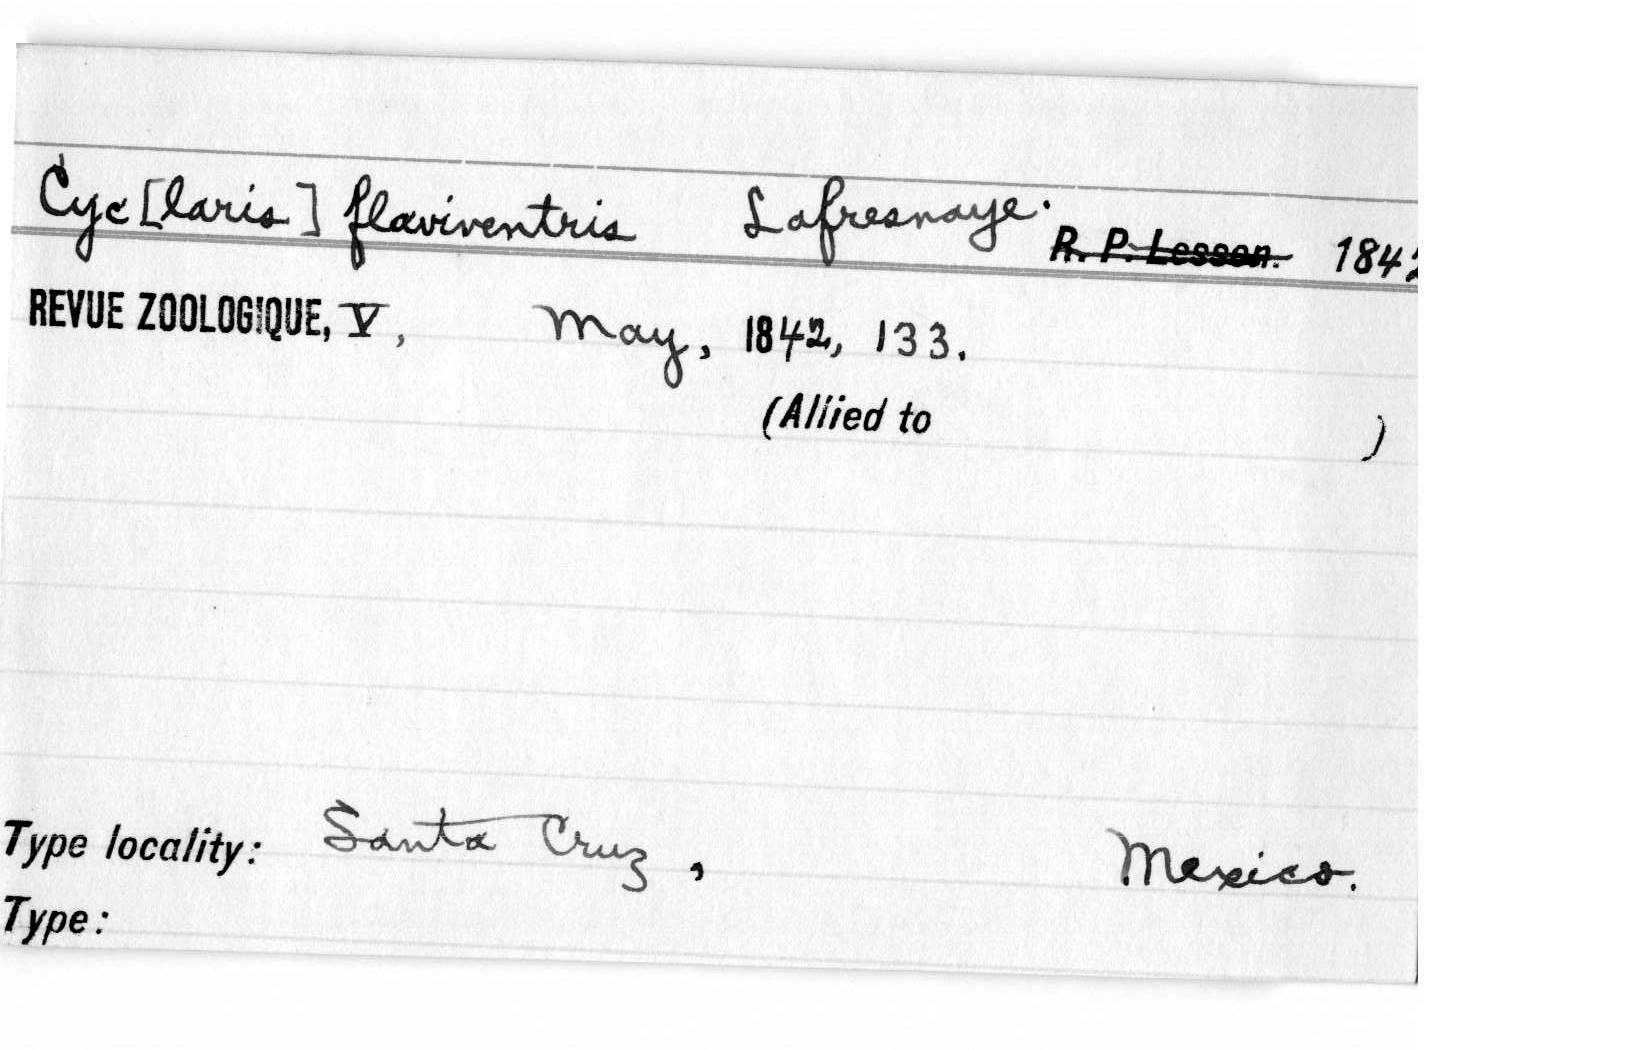 Cyc[laris] flaviventris Lafresnaye. R. P. Lesson. 1842
REVUE ZOOLOGIQUE, V, May, 1842, 133.
(Allied to )
Type locality: Santa Cruz, Mexico.
Type: